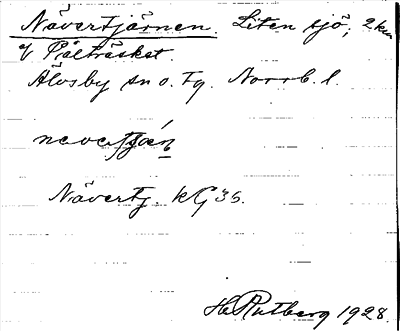 Nävertjärnen. Liten sjö, 2 km
v Pålträsket.
Älvsby sn o. Tg. Norrb. l.
Nävertj. kG 35.
H Rutberg 1928.